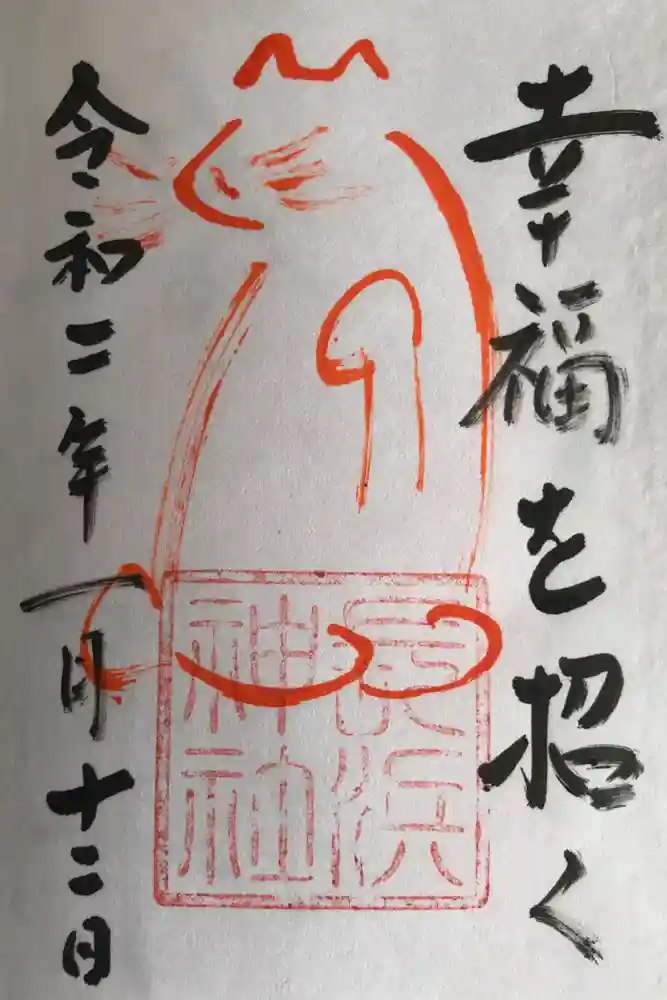 幸福を招く
長浜
神社
令和二年一月十二日